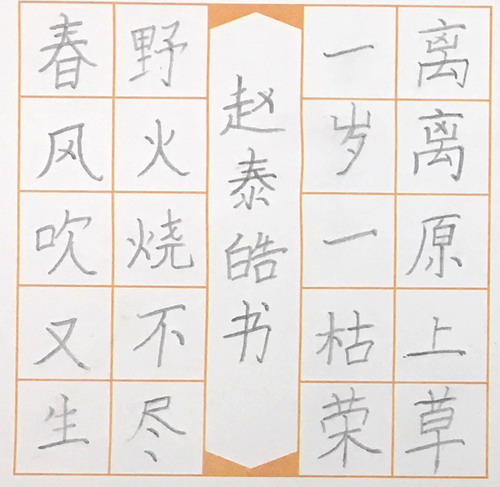 离离原上草
一岁一枯荣
赵泰皓书
野火烧不尽
春风吹又生